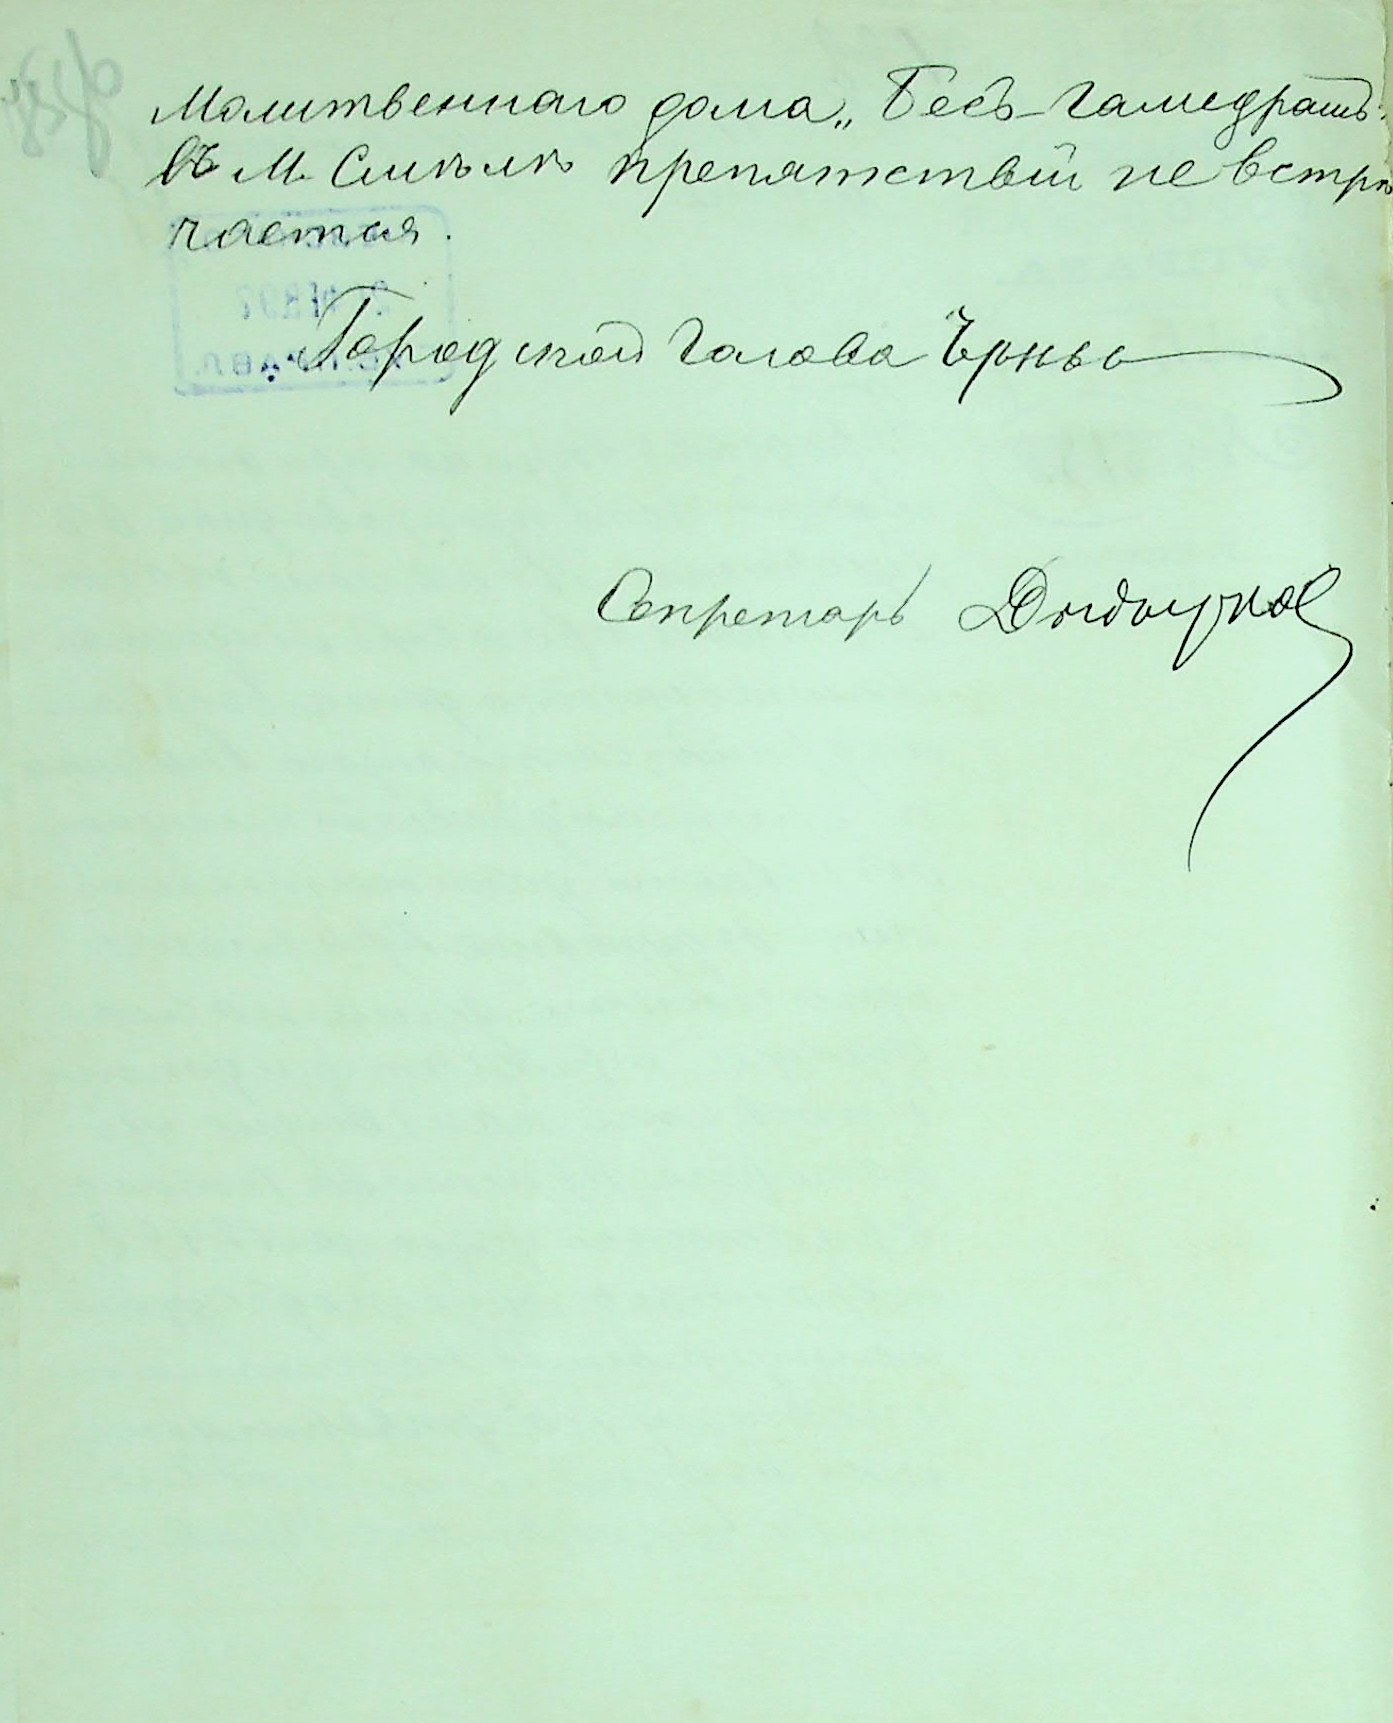 Молитвеннаго дома „Бесъ-гамедрашъ"
въ М. Смѣлѣ препятствій не встрѣ
чается.
Городской Голова
Секретарь